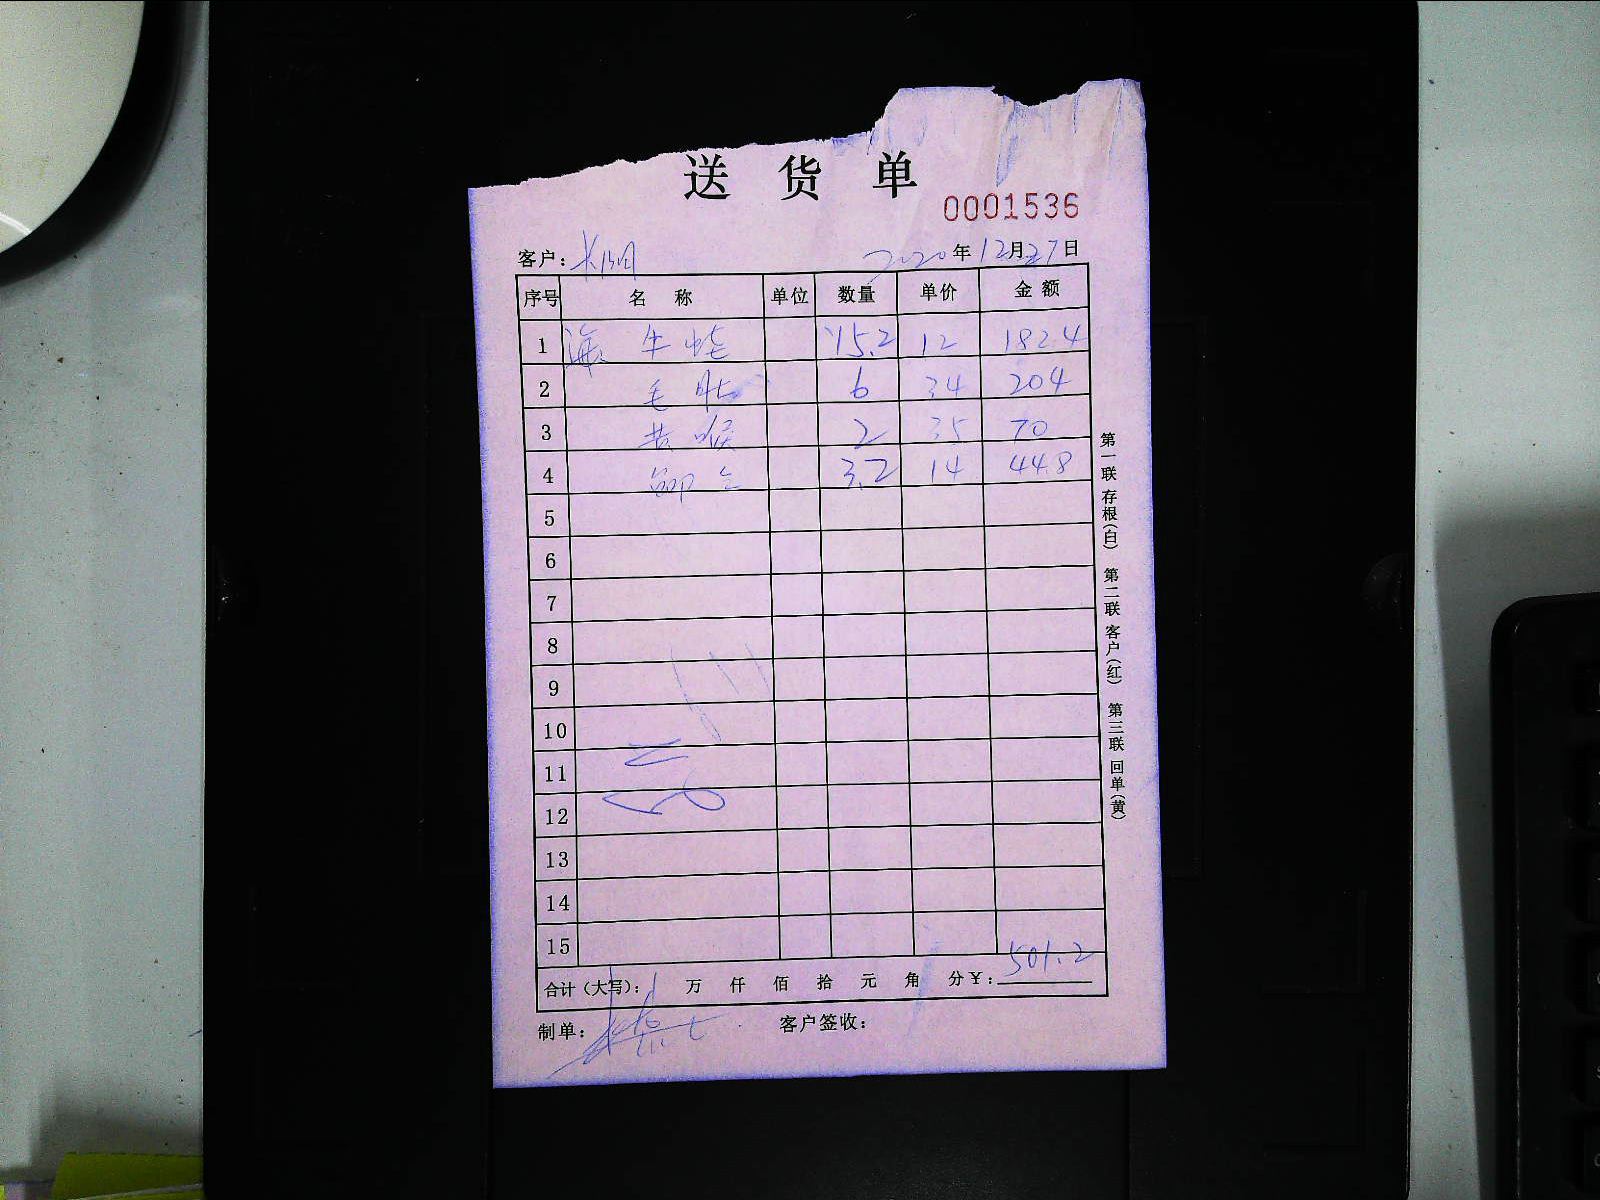 送 货 单
0001536
客户：
2020年12月27日
序号 名 称 单位 数量 单价 金额
1 海 牛蛙 15.2 12 182.4
2 毛肚 6 34 204
3 黄喉 2 35 70
4 3.2 14 44.8
5
6
7
8
9
10
11
12
13
14
15
合计（大写）： 万 仟 佰 拾 元 角 分 ￥：501.2
制单： 客户签收：
第一联 存根（白） 第二联 客户（红） 第三联 回单（黄）